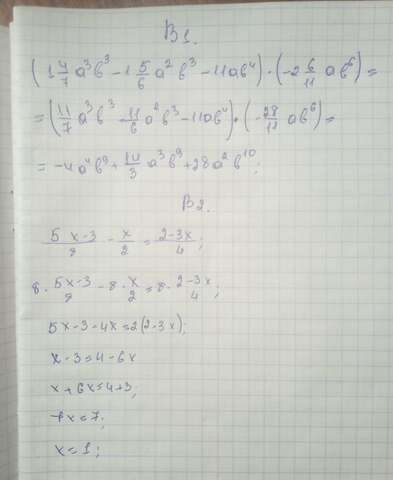 B1.
(1 4/7 a³b³ - 1 5/6 a²b³ - 11ab⁴) · (-2 6/11 ab⁶) =
= (11/7 a³b³ - 11/6 a²b³ - 11ab⁴) · (-28/11 ab⁶) =
= -4a⁴b⁹ + 14/3 a³b⁹ + 28a²b¹⁰;
B2.
5x-3/8 - x/2 = 2-3x/4;
8 · 5x-3/8 - 8 · x/2 = 8 · 2-3x/4;
5x-3-4x=2(2-3x);
x-3=4-6x
x+6x=4+3;
7x=7;
x=1;